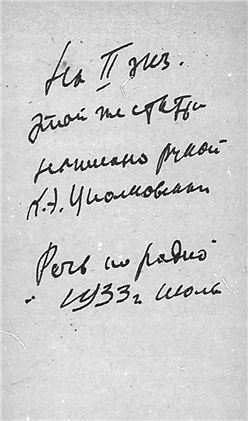 На II экз.
этой же статьи
написано рукой
К.Э. Циолковским
Речь по радио
" 1933 г. июль